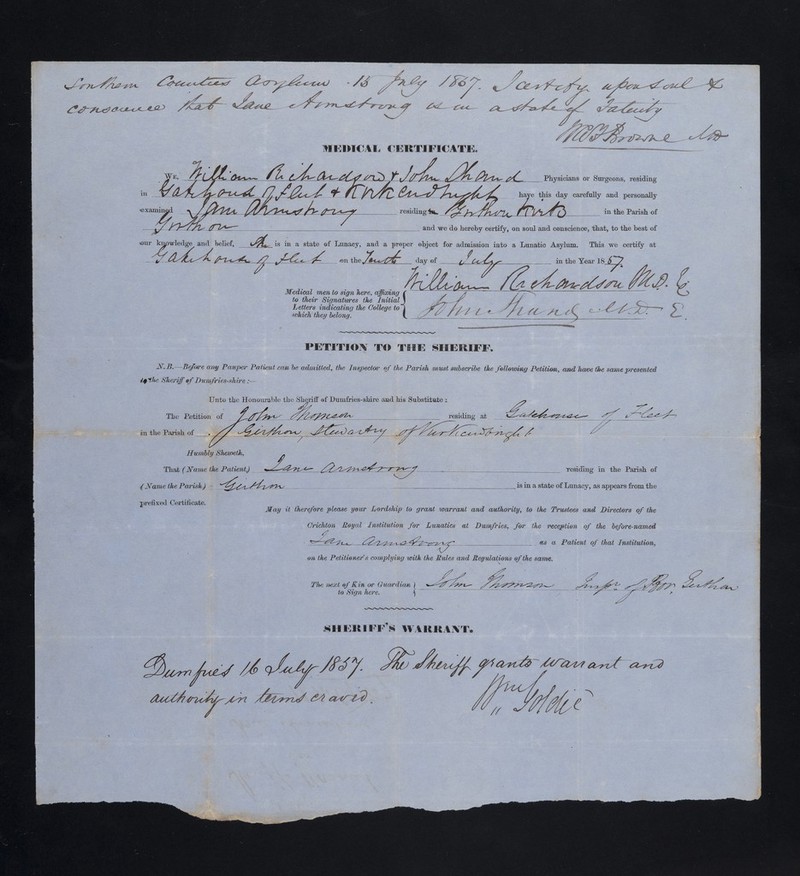 Southern Counties Asylum 15 July 1857. I certify upon soul &
conscience that Jane Armstrong is in a state of Fatuity
W A F Browne MD
MEDICAL CERTIFICATE.
We, William Richardson & John Shand Physicians or Surgeons, residing
in Gatehouse of Fleet & Kirkcudbright have this day carefully and personally
examined Jane Armstrong residing in Girthon Kirk in the Parish of
Girthon and we do hereby certify, on soul and conscience, that, to the best of
our knowledge and belief, she is in a state of Lunacy, and a proper object for admission into a Lunatic Asylum. This we certify at
Gatehouse of Fleet on the Tenth day of July in the Year 1857.
William Richardson M.D. E
Medical men to sign here, affixing
to their Signatures the Initial
Letters indicating the College to
which they belong.
John Shand MD. E.
PETITION TO THE SHERIFF.
N.B.—Before any Pauper Patient can be admitted, the Inspector of the Parish must subscribe the following Petition, and have the same presented
to the Sheriff of Dumfries-shire:—
Unto the Honourable the Sheriff of Dumfries-shire and his Substitute:
The Petition of John Thomson residing at Gatehouse of Fleet
in the Parish of Girthon, Stewartry of Kirkcudbright
Humbly Sheweth,
That (Name the Patient) Jane Armstrong residing in the Parish of
(Name the Parish) Girthon is in a state of Lunacy, as appears from the
prefixed Certificate.
May it therefore please your Lordship to grant warrant and authority, to the Trustees and Directors of the
Crichton Royal Institution for Lunatics at Dumfries, for the reception of the before-named
Jane Armstrong as a Patient of that Institution,
on the Petitioner's complying with the Rules and Regulations of the same.
The next of Kin or Guardian
to Sign here.
John Thomson Inspr. of Poor, Girthon
SHERIFF'S WARRANT.
Dumfries 16 July 1857. The Sheriff grants warrant and
authority in terms craved.
Wm Goldie